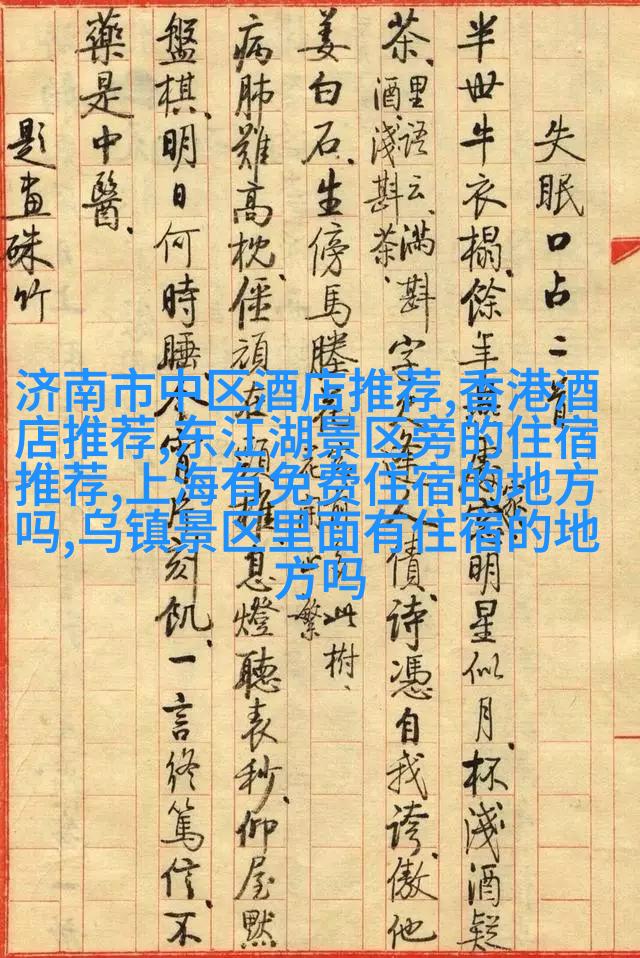 失眠口占二首
半世牛衣榻、餘年 明星似月、杯淺酒疑
茶、里語云、滿斟酒、淺斟茶、字 逢人債、詩憑自我誇、傲他
姜白石、生傍馬塍花、 此樹、繁
病肺難高枕、僵頑在頸椎、息燈聽表秒、仰屋默
盤棋、明日何時睡、今宵片刻飢、一言終篤信、不
藥是中醫、
題畫硃竹
济南市中区酒店推荐,香港酒
店推荐,东江湖景区旁的住宿
推荐,上海有免费住宿的地方
吗,乌镇景区里面有住宿的地
方吗